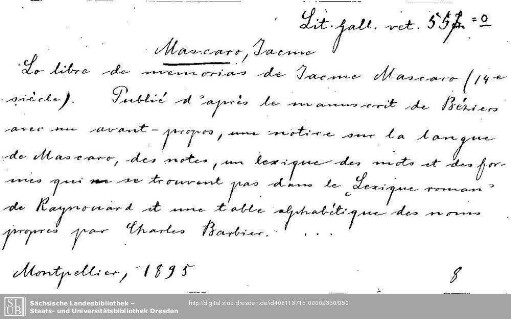 Lit. Gall. vet. 557 =0
Mascaro, Jacme
Lo libre de memorias de Jacme Mascaro (14e
siècle). Publié d'après le manuscrit de Béziers
avec un avant-propos, une notice sur la langue
de Mascaro, des notes, un lexique des mots et des for-
mes qui ne se trouvent pas dans le „Lexique roman"
de Raynouard et une table alphabétique des noms
propres par Charles Barbier. ...
Montpellier, 1895 8
Sächsische Landesbibliothek –
Staats- und Universitätsbibliothek Dresden